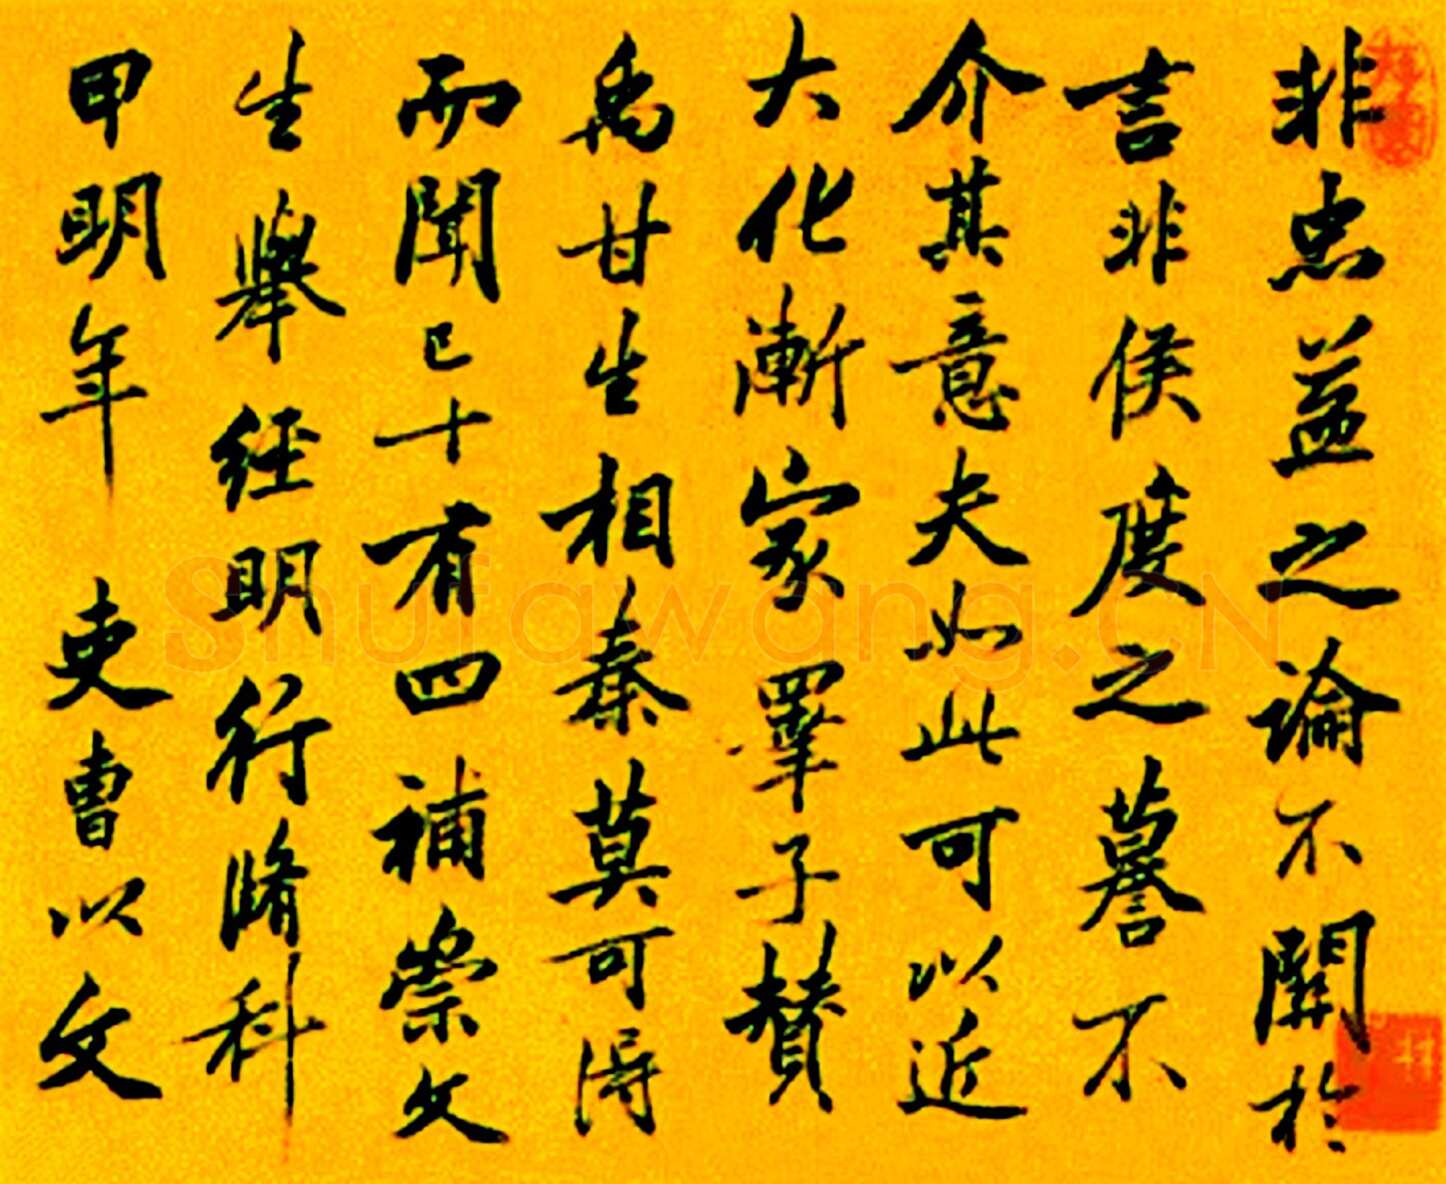 非忠益之論不關於
言非侯度之謩不
介其意夫如此可以近
大化漸家羣子贊
禹甘生相秦莫可得
而聞已十有四補崇文
生舉經明行脩科
甲明年 吏曹以文
Shufawang.CN